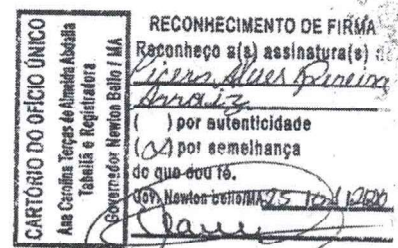 CARTÓRIO DO OFÍCIO ÚNICO
Ana Carolina Terças de Almeida Abdalla
Tabeliã e Registradora
Governador Newton Bello / MA
RECONHECIMENTO DE FIRMA
Reconheço a(s) assinatura(s) d
Cicero Alves Pereira
( ) por autenticidade
( ) por semelhança
do que dou fé.
Gov. Newton Bello/MA 25